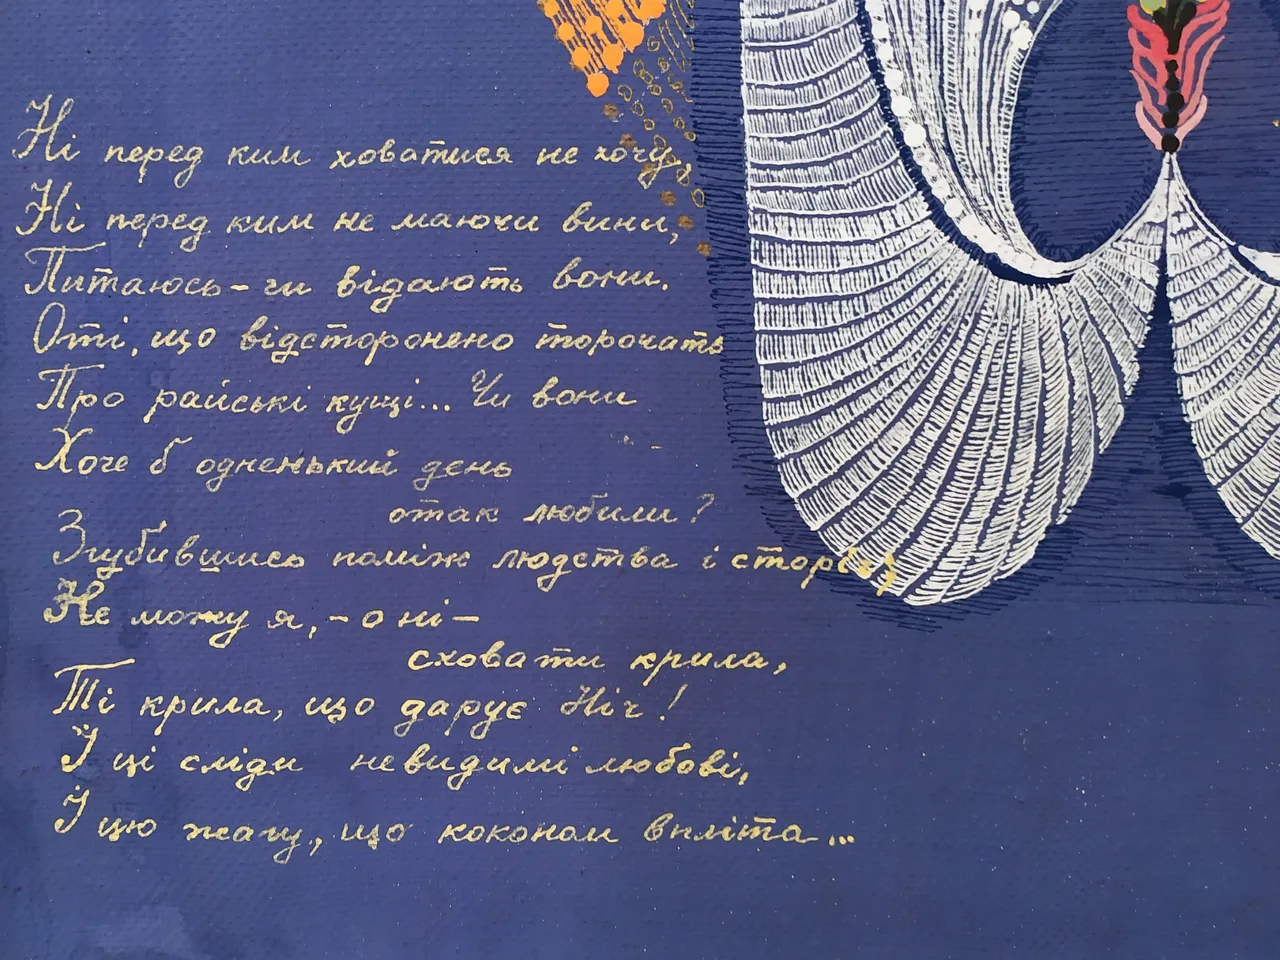 Ні перед ким ховатися не хочу,
Ні перед ким не маючи вини,
Питаюсь – чи відають вони.
Оті, що відсторонено торочать
Про райські кущі... Чи вони
Хоче б одненький день
отак любили?
Згубившись поміж людства і сторіч,
Не можу я, – о ні –
сховати крила,
Ті крила, що дарує Ніч!
І ці сліди невидимі любові,
І цю жагу, що коконом впліта...